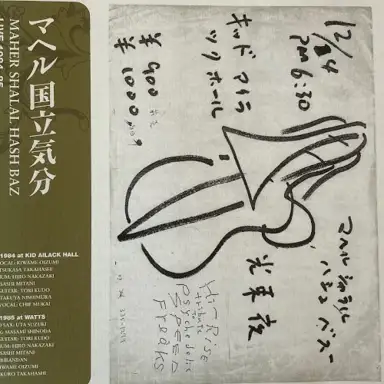 マヘル国立気分
MAHER SHALAL HASH BAZ
1984 at KID AILACK HALL
TSUKASA TAKAHASHI
HIRO NAKAZAKI
MITANI
GUITAR: TORI KUDO
TAKUYA NISHIMURA
VOCAL: CHIE MUKAI
1985 at WATTS
SAX: UTA SUZUKI
MASAMI SHINODA
GUITAR: TORI KUDO
HIRO NAKAZAKI
MITANI
OIZUMI
TAKAHASHI
12/24
PM 6:30
キッド アイラ
ック ホール
¥900
¥1000
マヘル シャラル
ハシュ バズ
光束夜
Hi-Rise
tribute to
Psychedelic
SPEED
FREAKS